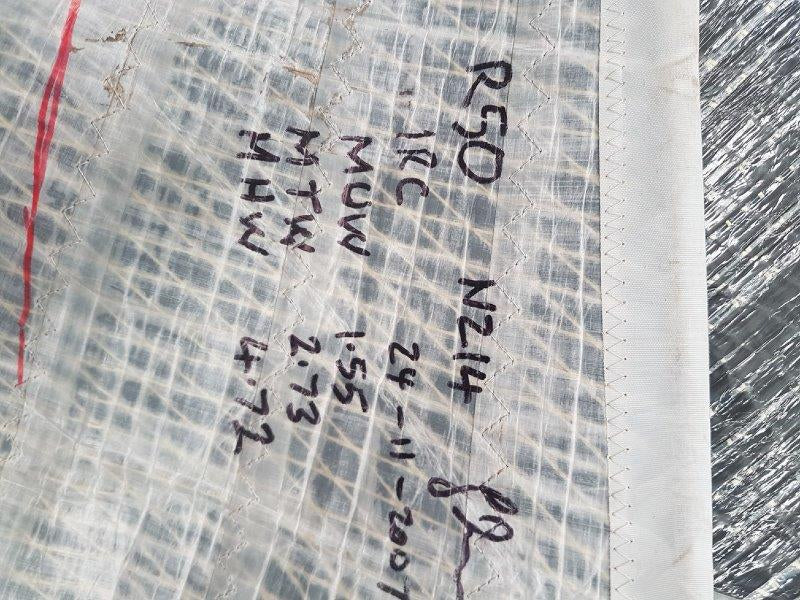 R50 N214
IRC 24-11-2007
MUW 1.55
MTW 2.73
MHW 4.72